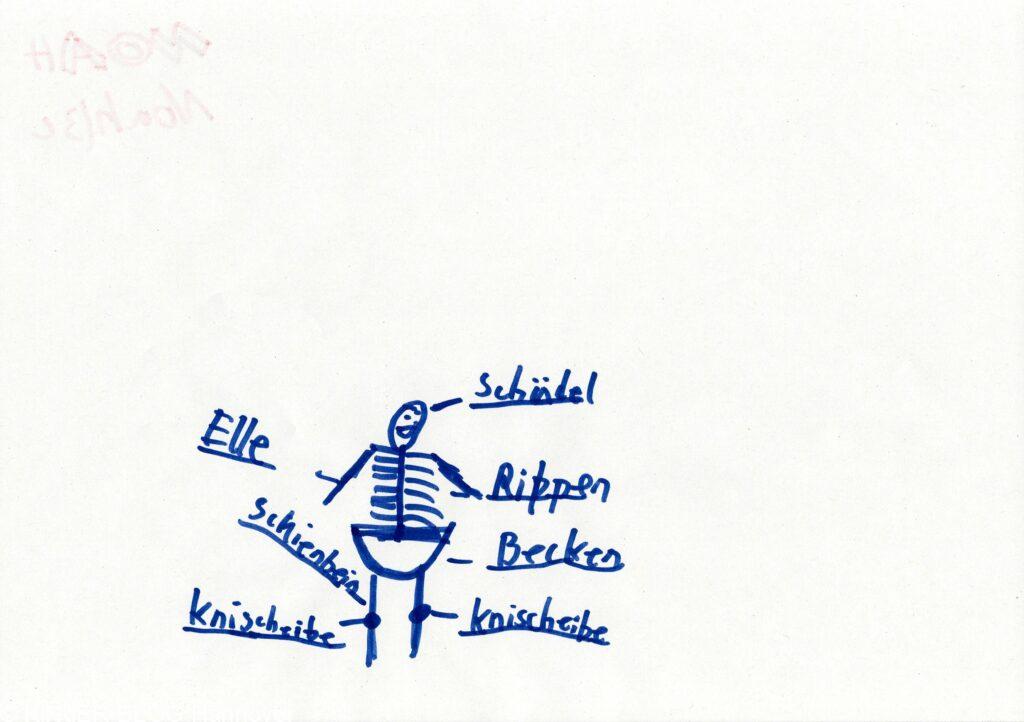 NOAH
Noah/3c
Schädel
Elle
Rippen
Schienbein
Becken
Knischeibe
Knischeibe